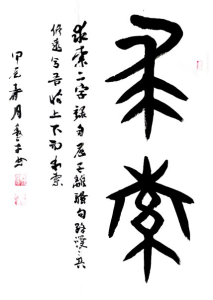 求索
求索二字録自屈子離騷句路漫漫其
修遠兮吾將上下而求索
甲辰